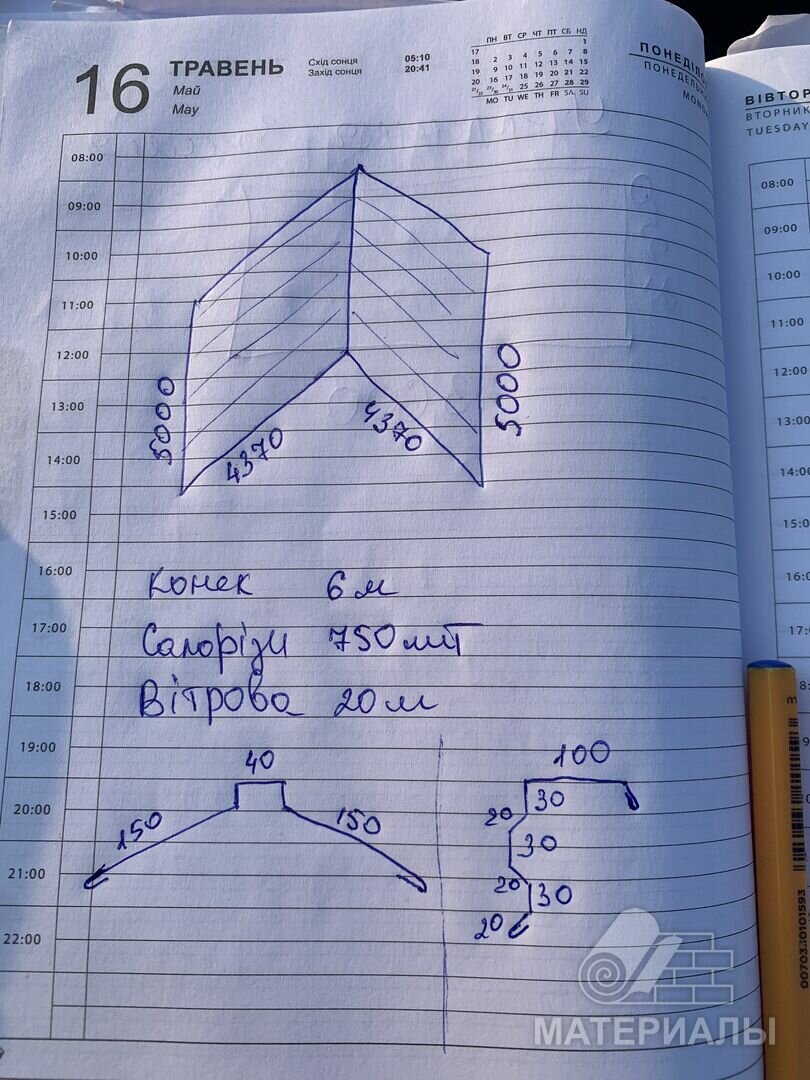 16 ТРАВЕНЬ
Май
May
Схід сонця 05:10
Захід сонця 20:41
ПН ВТ СР ЧТ ПТ СБ НД
17 1
18 2 3 4 5 6 7 8
19 9 10 11 12 13 14 15
20 16 17 18 19 20 21 22
21/22 23/30 24/31 25 26 27 28 29
MO TU WE TH FR SA SU
ПОНЕДІЛО
ПОНЕДЕЛЬН
MOND
ВІВТОР
ВТОРНИК
TUESDAY
08:00
09:00
10:00
11:00
12:00
13:00
14:00
15:00
16:00
17:00
18:00
19:00
20:00
21:00
22:00
5000
4370
4370
5000
Конек 6 м
Саморізи 750 шт
Вітрова 20 м
40
150
150
100
30
20
30
20
30
20
08:00
09:00
10:00
11:00
12:00
13:00
14:00
15:00
16:0
17:
МАТЕРИАЛЫ